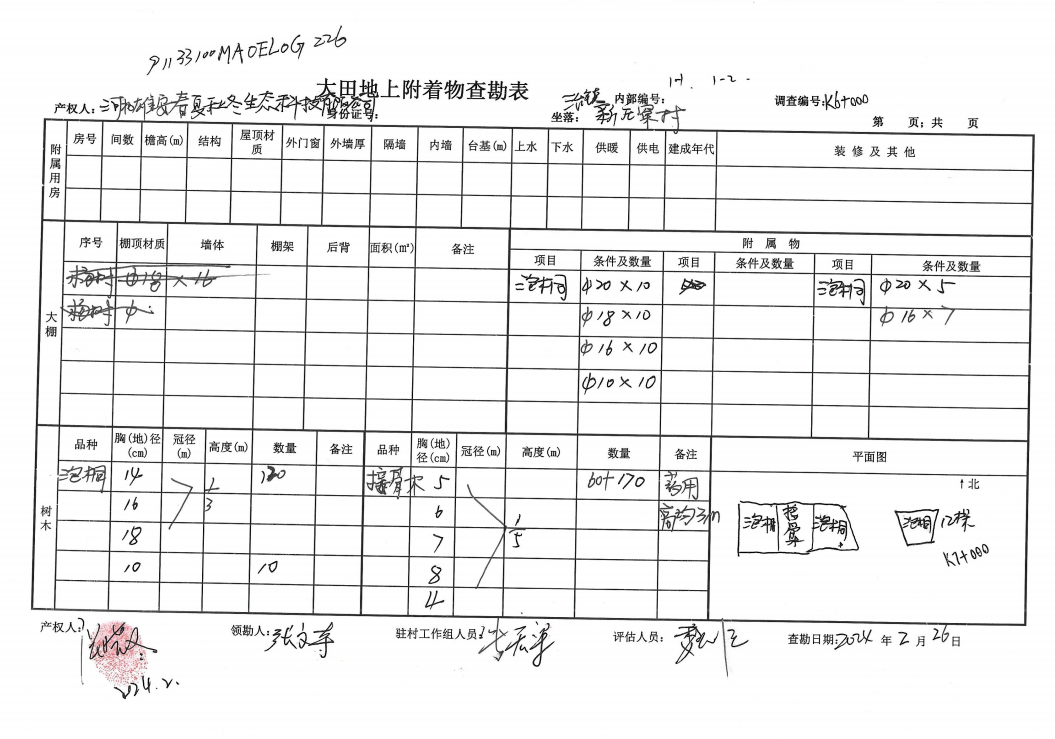 91133100MA0EL0G 226
大田地上附着物查勘表
1-1 1-2.
产权人: 河北雄安春夏秋冬生态科技有限公司 身份证号: 坐落: 内部编号: 调查编号:K6+000 第 页;共 页
附属用房 房号 间数 檐高(m) 结构 屋顶材质 外门窗 外墙厚 隔墙 内墙 台基(m) 上水 下水 供暖 供电 建成年代 装修及其他
大棚 序号 棚顶材质 墙体 棚架 后背 面积(㎡) 备注 附属物
项目 条件及数量 项目 条件及数量 项目 条件及数量
φ18×16 泡桐 φ20×10 泡桐 φ20×5
φ φ18×10 φ16×7
φ16×10
φ10×10
树木 品种 胸(地)径(cm) 冠径(m) 高度(m) 数量 备注 品种 胸(地)径(cm) 冠径(m) 高度(m) 数量 备注 平面图
泡桐 14 1 120 接骨木 5 60+170 药用 ↑北
16 3 6 1 高均3m
18 7 5
10 10 8
4
泡桐 接骨 泡桐 泡桐 12棵
K7+000
产权人: 领勘人: 张文 驻村工作组人员: 评估人员: 查勘日期:2024 年 2 月 26 日
2024.2.